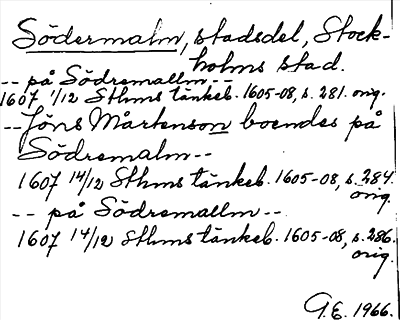 Södermalm, stadsdel, Stock-
holms stad.
-- på Södremallm --
1607 1/12 Sthms tänkeb. 1605-08, s. 281. orig.
-- Jöns Mårtenson boendes på
Södremalm --
1607 14/12 Sthms tänkeb. 1605-08, s. 284.
orig.
-- på Södremallm --
1607 14/12 Sthms tänkeb. 1605-08, s. 286.
orig.
G.E. 1966.